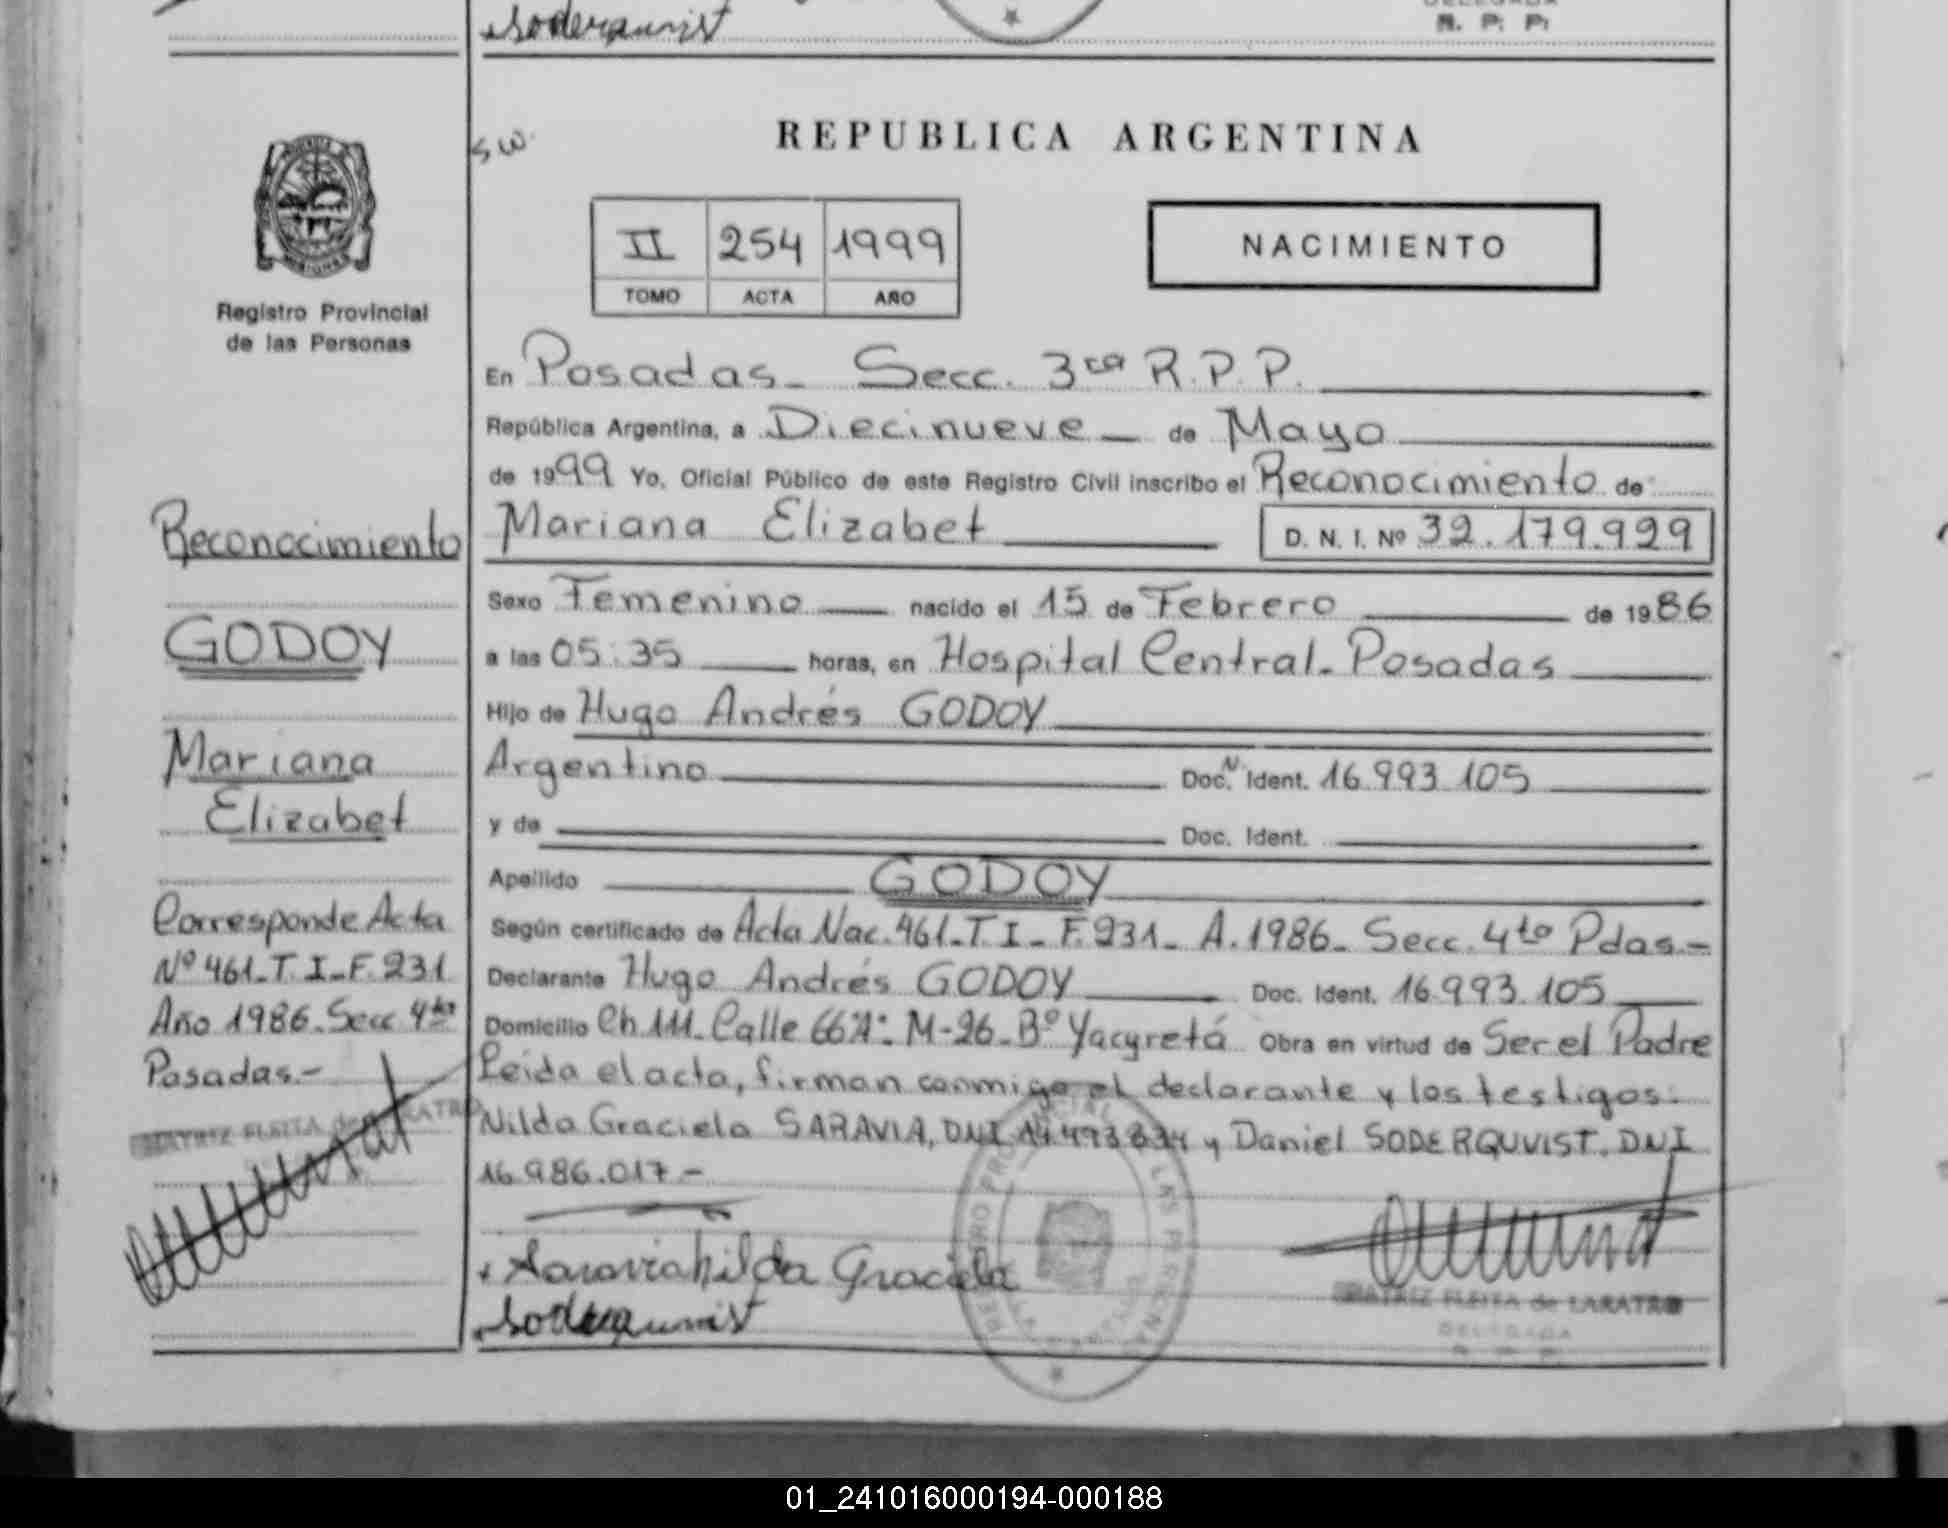 Soderquvist
DELEGADA
R. P. P.
SW.
REPUBLICA ARGENTINA
II 254 1999
TOMO ACTA AÑO
NACIMIENTO
Registro Provincial
de las Personas
En Posadas - Secc. 3ra R.P.P.
República Argentina, a Diecinueve - de Mayo
de 1999 Yo, Oficial Público de este Registro Civil inscribo el Reconocimiento de
Mariana Elizabet D. N. I. Nº 32.179.929
Sexo Femenino nacido el 15 de Febrero de 1986
a las 05:35 horas, en Hospital Central - Posadas
Hijo de Hugo Andrés GODOY
Argentino Doc. Ident. 16.993.105
y de Doc. Ident.
Apellido GODOY
Según certificado de Acta Nac. 461 - T. I - F. 231 - A. 1986 - Secc. 4to Pdas.-
Declarante Hugo Andrés GODOY Doc. Ident. 16.993.105
Domicilio Ch 111 - Calle 66 "A" M-26 - Bº Yacyretá Obra en virtud de Ser el Padre
Leida el acta, firman conmigo el declarante y los testigos:
Nilda Graciela SARAVIA, DNI y Daniel SODERQUVIST, DNI
16.986.017.-
Saravia nilda Graciela
Soderquvist
BEATRIZ FLEITA de TARATRO
DELEGADA
R. P. P.
Reconocimiento
GODOY
Mariana
Elizabet
Corresponde Acta
Nº 461 - T. I - F. 231
Año 1986 - Secc 4to
Posadas.-
BEATRIZ FLEITA de TARATRO
01_241016000194-000188